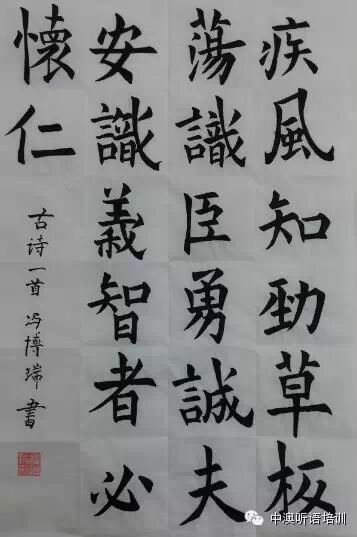 疾風知勁草板
蕩識臣勇誠夫
安識義智者必
懷仁
古诗一首 冯博瑞 書
中澳听语培训